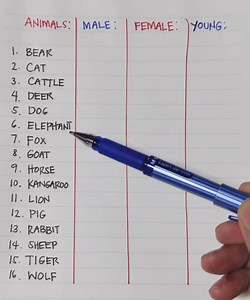 ANIMALS: MALE: FEMALE: YOUNG:
1. BEAR
2. CAT
3. CATTLE
4. DEER
5. DOG
6. ELEPHANT
7. FOX
8. GOAT
9. HORSE
10. KANGAROO
11. LION
12. PIG
13. RABBIT
14. SHEEP
15. TIGER
16. WOLF